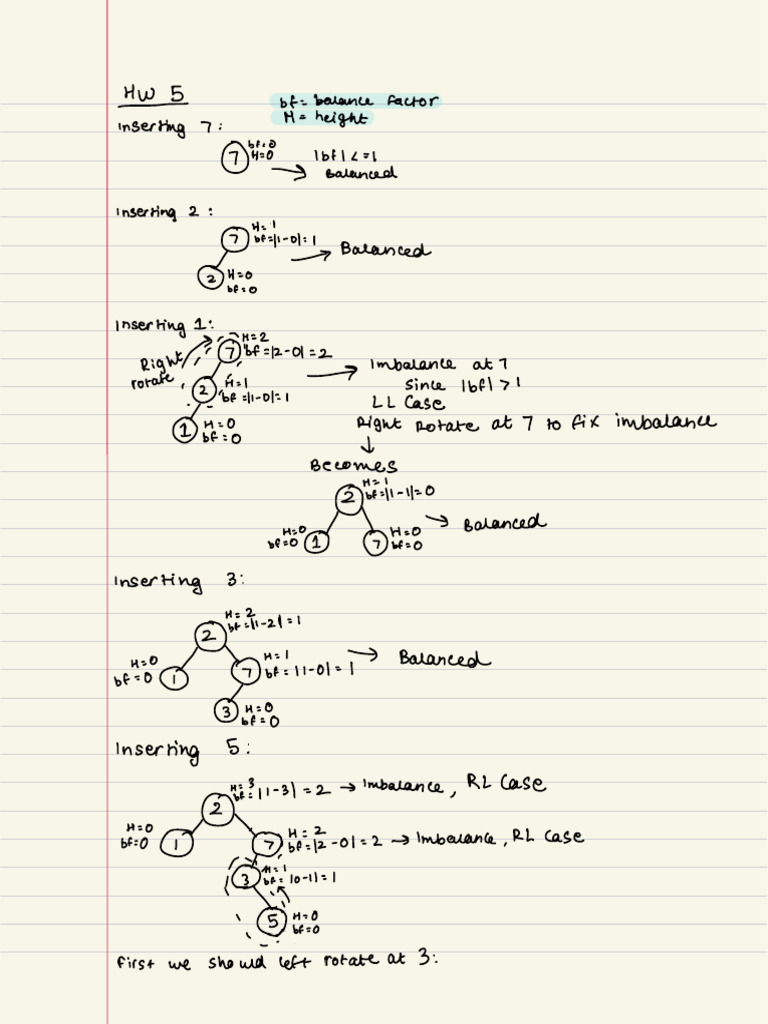 HW 5
bf = balance factor
H = height
Inserting 7:
bf=0
7 H=0
|bf| <= 1
Balanced
Inserting 2:
H=1
7 bf=|1-0|=1
Balanced
2 H=0
bf=0
Inserting 1:
H=2
7 bf=|2-0|=2
Right rotate
Imbalance at 7
since |bf| > 1
2 H=1
bf=|1-0|=1
LL Case
1 H=0
bf=0
Right Rotate at 7 to fix imbalance
Becomes
H=1
2 bf=|1-1|=0
H=0
bf=0 1
7 H=0
bf=0
Balanced
Inserting 3:
H=2
2 bf=|1-2|=1
H=0
bf=0 1
7 H=1
bf=|1-0|=1
Balanced
3 H=0
bf=0
Inserting 5:
H=3
bf=|1-3|=2 → Imbalance, RL Case
2
H=0
bf=0 1
7 H=2
bf=|2-0|=2 → Imbalance, RL Case
3 H=1
bf=|0-1|=1
5 H=0
bf=0
First we should left rotate at 3: